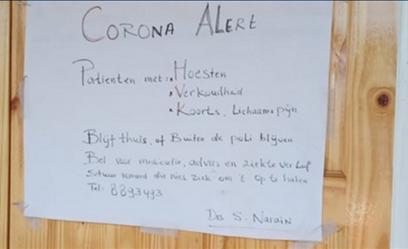 CORONA ALERT
Patienten met: • Hoesten
• Verkoudheid
• Koorts, Lichaamspijn
Blijf thuis, of Buiten de poli blijven
Bel voor medicatie, advies en ziekte verlof
Stuur iemand die niet ziek om 't op te halen
Tel: 8893493
Drs S. Narain